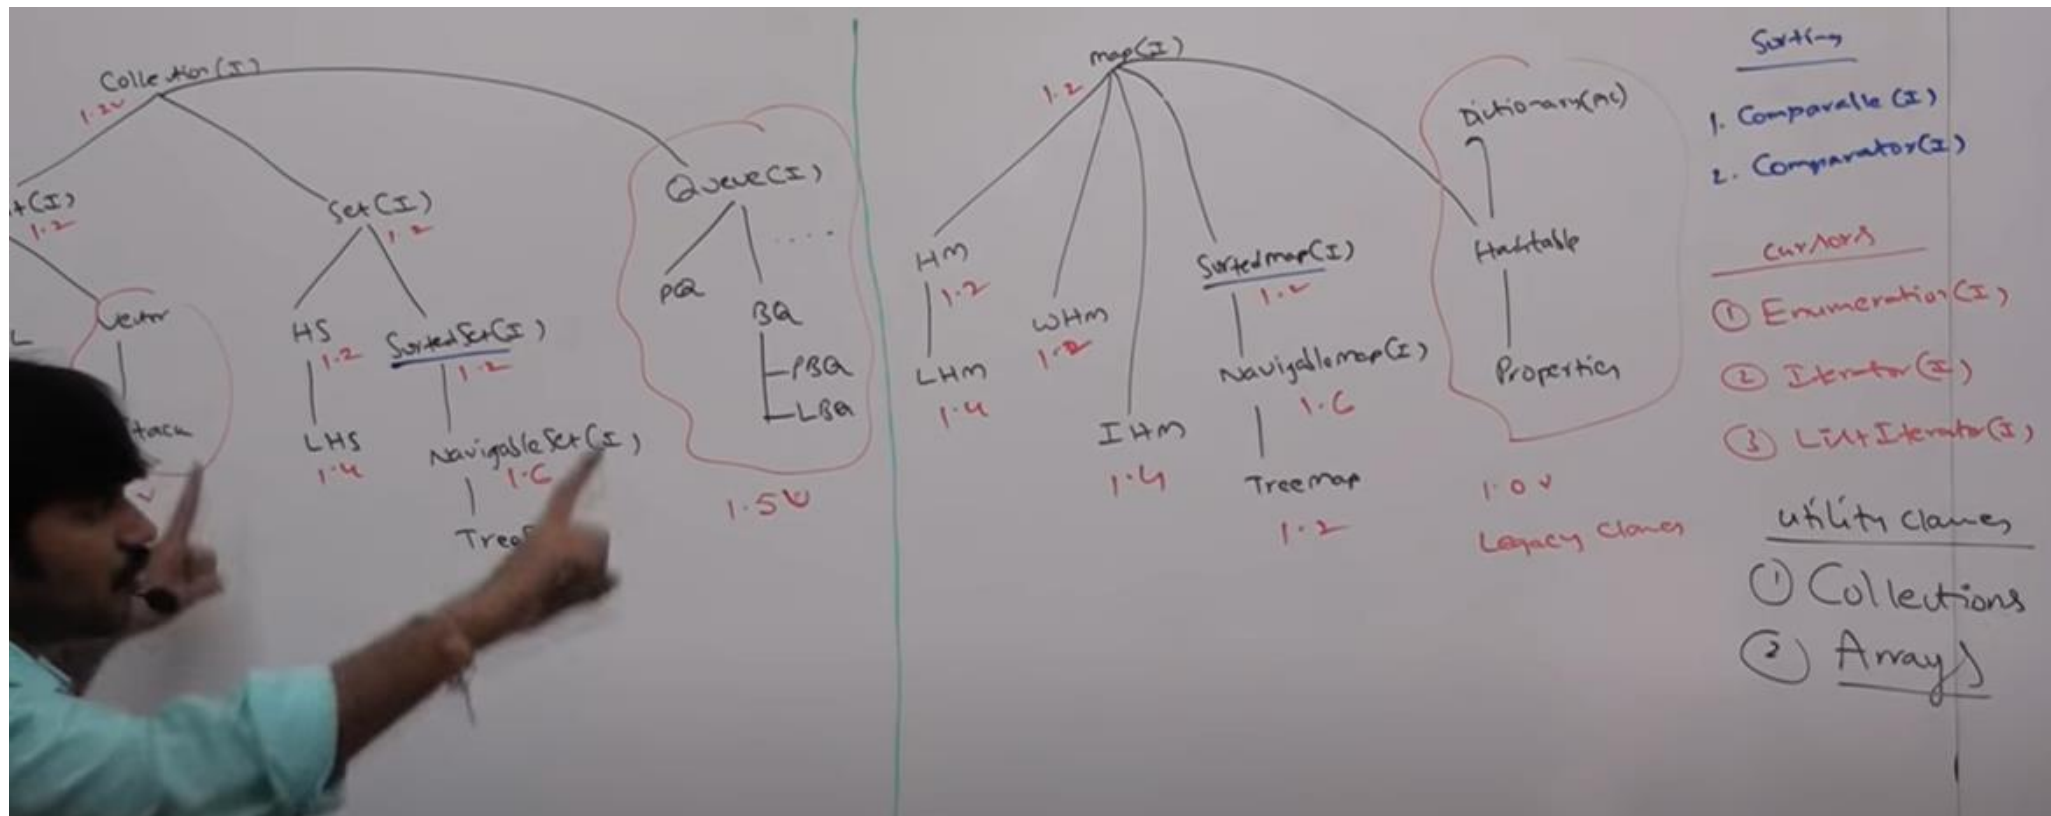 Collection(I)
1.2v
t(I)
1.2
L
Vector
tack
v
Set(I)
1.2
HS
1.2
LHS
1.4
SortedSet(I)
1.2
NavigableSet(I)
1.6
Tree
Queue(I)
PQ
....
BQ
PBQ
LBQ
1.5v
map(I)
1.2
HM
1.2
LHM
1.4
WHM
1.2
IHM
1.4
Sortedmap(I)
1.2
Navigablemap(I)
1.6
Treemap
1.2
Dictionary(AC)
Hashtable
Properties
1.0v
Legacy classes
Sorting
1. Comparable (I)
2. Comparator(I)
cursors
① Enumeration(I)
② Iterator(I)
③ ListIterator(I)
utility classes
① Collections
② Arrays